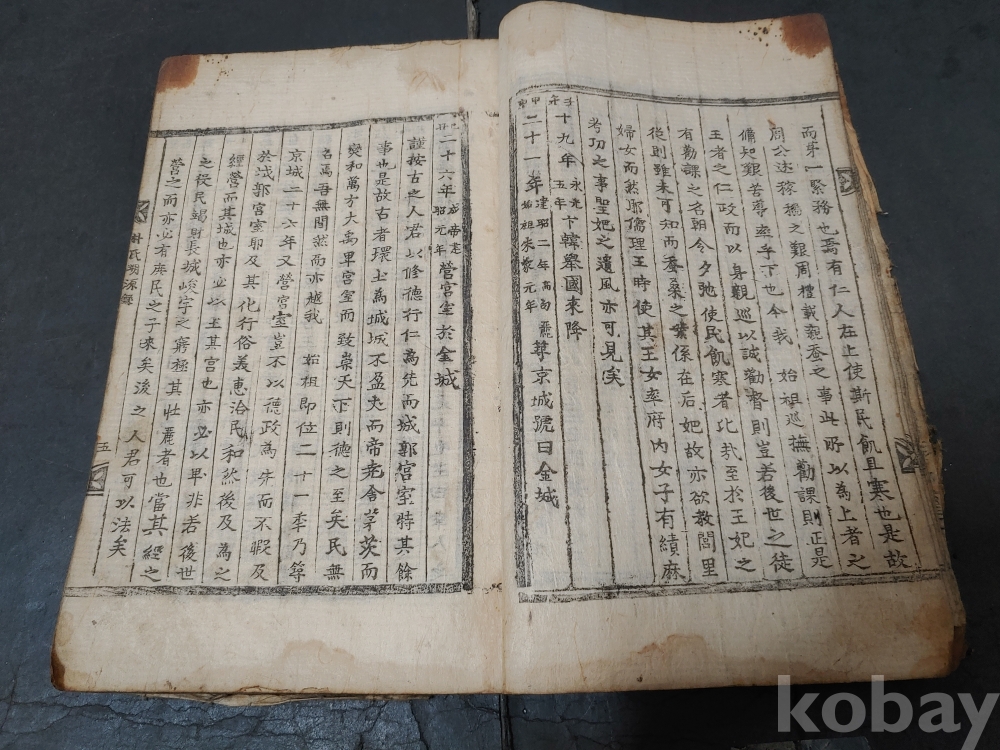 而第一緊務也焉有仁人在上使斯民飢且寒也是故
周公述稼穡之艱周禮載親蚕之事此所以為上者之
備知艱苦導率乎下也今我 始祖巡撫勸課則正是
王者之仁政而以身親巡以誠勸督則豈若後世之徒
有勸課之名朝令夕弛使民飢寒者比哉至於王妃之
從則雖未可知而蚕桑之業係在后妃故亦欲教閭里
婦女而然耶儒理王時使其王女率府內女子有績麻
考功之事聖妃之遺風亦可見矣
甲子
十九年 永光五年 卞韓舉國來降
二十一年 建昭二年高句麗始祖朱蒙元年 築京城號曰金城
二十六年 成帝建昭元年 營宮室於金城
謹按古之人君以修德行仁為先而城郭宮室特其餘
事也是故古者環土為城城不盈丈而帝堯舍茅茨而
燮和萬方大禹卑宮室而致崇天下則德之至矣民無
名焉吾無間然而亦越我 始祖即位二十一季乃築
京城二十六年又營宮室豈不以德政為先而不暇及
於城郭宮室耶及其化行俗美惠洽民和然後及為之
經營而其城也亦必以土其宮也亦必以卑非若後世
之役民竭財長城峻宇之窮極其壯麗者也當其經之
營之而亦必有庶民之子來矣後之人君可以法矣
朴氏朔源錄
五
kobay